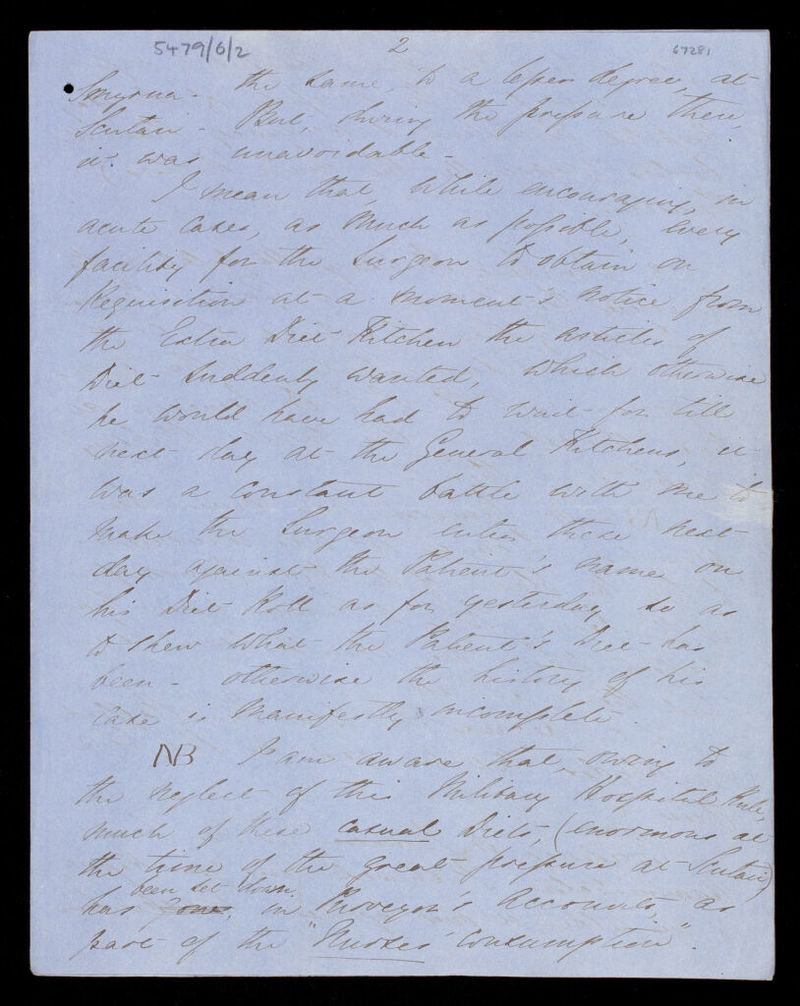 5479/6/2
2
67281
Smyrna - the same, to a lesser degree, at
Scutari - But, during the pressure there,
it was unavoidable -
I mean that, while encouraging, in
acute cases, as much as possible, every
facility for the Surgeon to obtain on
Requisition at a moment's notice from
the Extra Diet Kitchen the articles of
Diet suddenly wanted, which otherwise
he would have had to wait for till
next day at the General Kitchens, it
was a constant battle with me to
make the Surgeon enter these next
day against the Patient's name on
his Diet Roll as for yesterday so as
to shew what the Patient's Diet has
been - otherwise the history of his
case is manifestly incomplete.
NB I am aware that, owing to
the neglect of this Military Hospital Rule,
much of these casual Diets, (enormous at
the time of the great pressure at Scutari)
been set down
has in Purveyor's Accounts, as
part of the "Nurses' consumption".